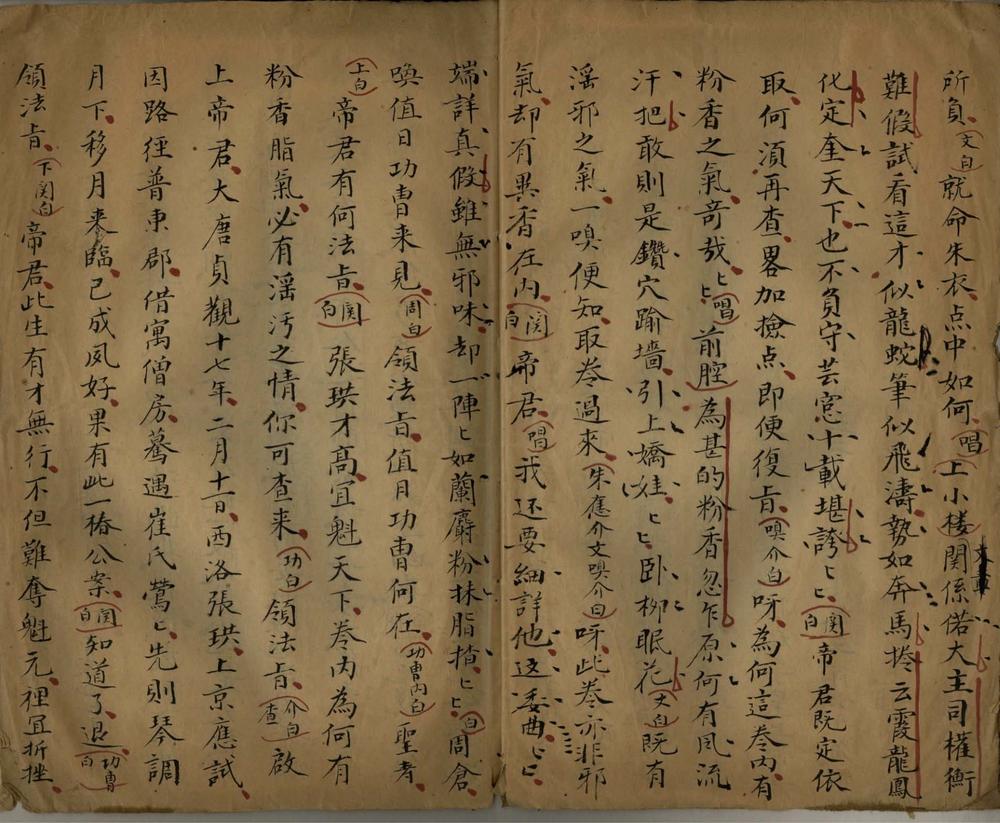 所負(文白)就命朱衣点中如何(唱)上小楼関係偌大主司權衡
難假試看這才似龍蛇筆似飛濤勢如奔馬捲云霞龍鳳
化定奎天下也不負守芸窓十載堪誇匕匕(関白)帝君既定依
取何須再查畧加撿点即便復旨(嗅介白)呀為何這卷内有
粉香之氣奇哉匕匕(唱)前腔為甚的粉香忽乍原何有風流
汗把敢則是鑽穴踰墻引上嬌娃匕匕卧柳眠花(文白)既有
淫邪之氣一嗅便知取卷過來(朱應介文嗅介白)呀此卷亦非邪
氣却有異香在内(関白)帝君(唱)我还要細詳他这委曲匕匕
端詳真假雖無邪味却一陣匕如蘭麝粉抹脂揸匕匕(白)周倉
喚值日功曹来見(周白)領法旨值月功曹何在(功曹内白)聖者
(上白)帝君有何法旨(関白)張珙才高冝魁天下卷内為何有
粉香脂氣必有淫汚之情你可查来(功白)領法旨(介白查)啟
上帝君大唐貞觀十七年二月十一日西洛張珙上京應試
因路徑普東郡借寓僧房驀遇崔氏鶯匕先則琴調
月下移月来臨已成夙好果有此一樁公案(関白)知道了退(功曹白)
領法旨(下関白)帝君此生有才無行不但難奪魁元裡冝折挫